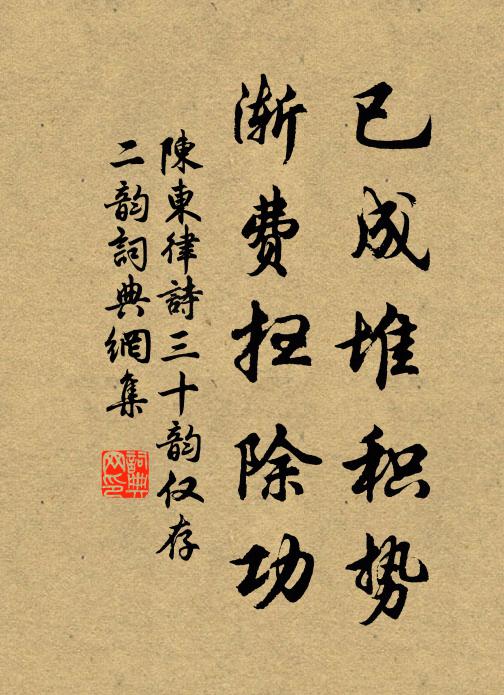 已成堆积势
渐费扫除功
陳東律詩三十韵仅存
二韵詞典網集
詞典网印